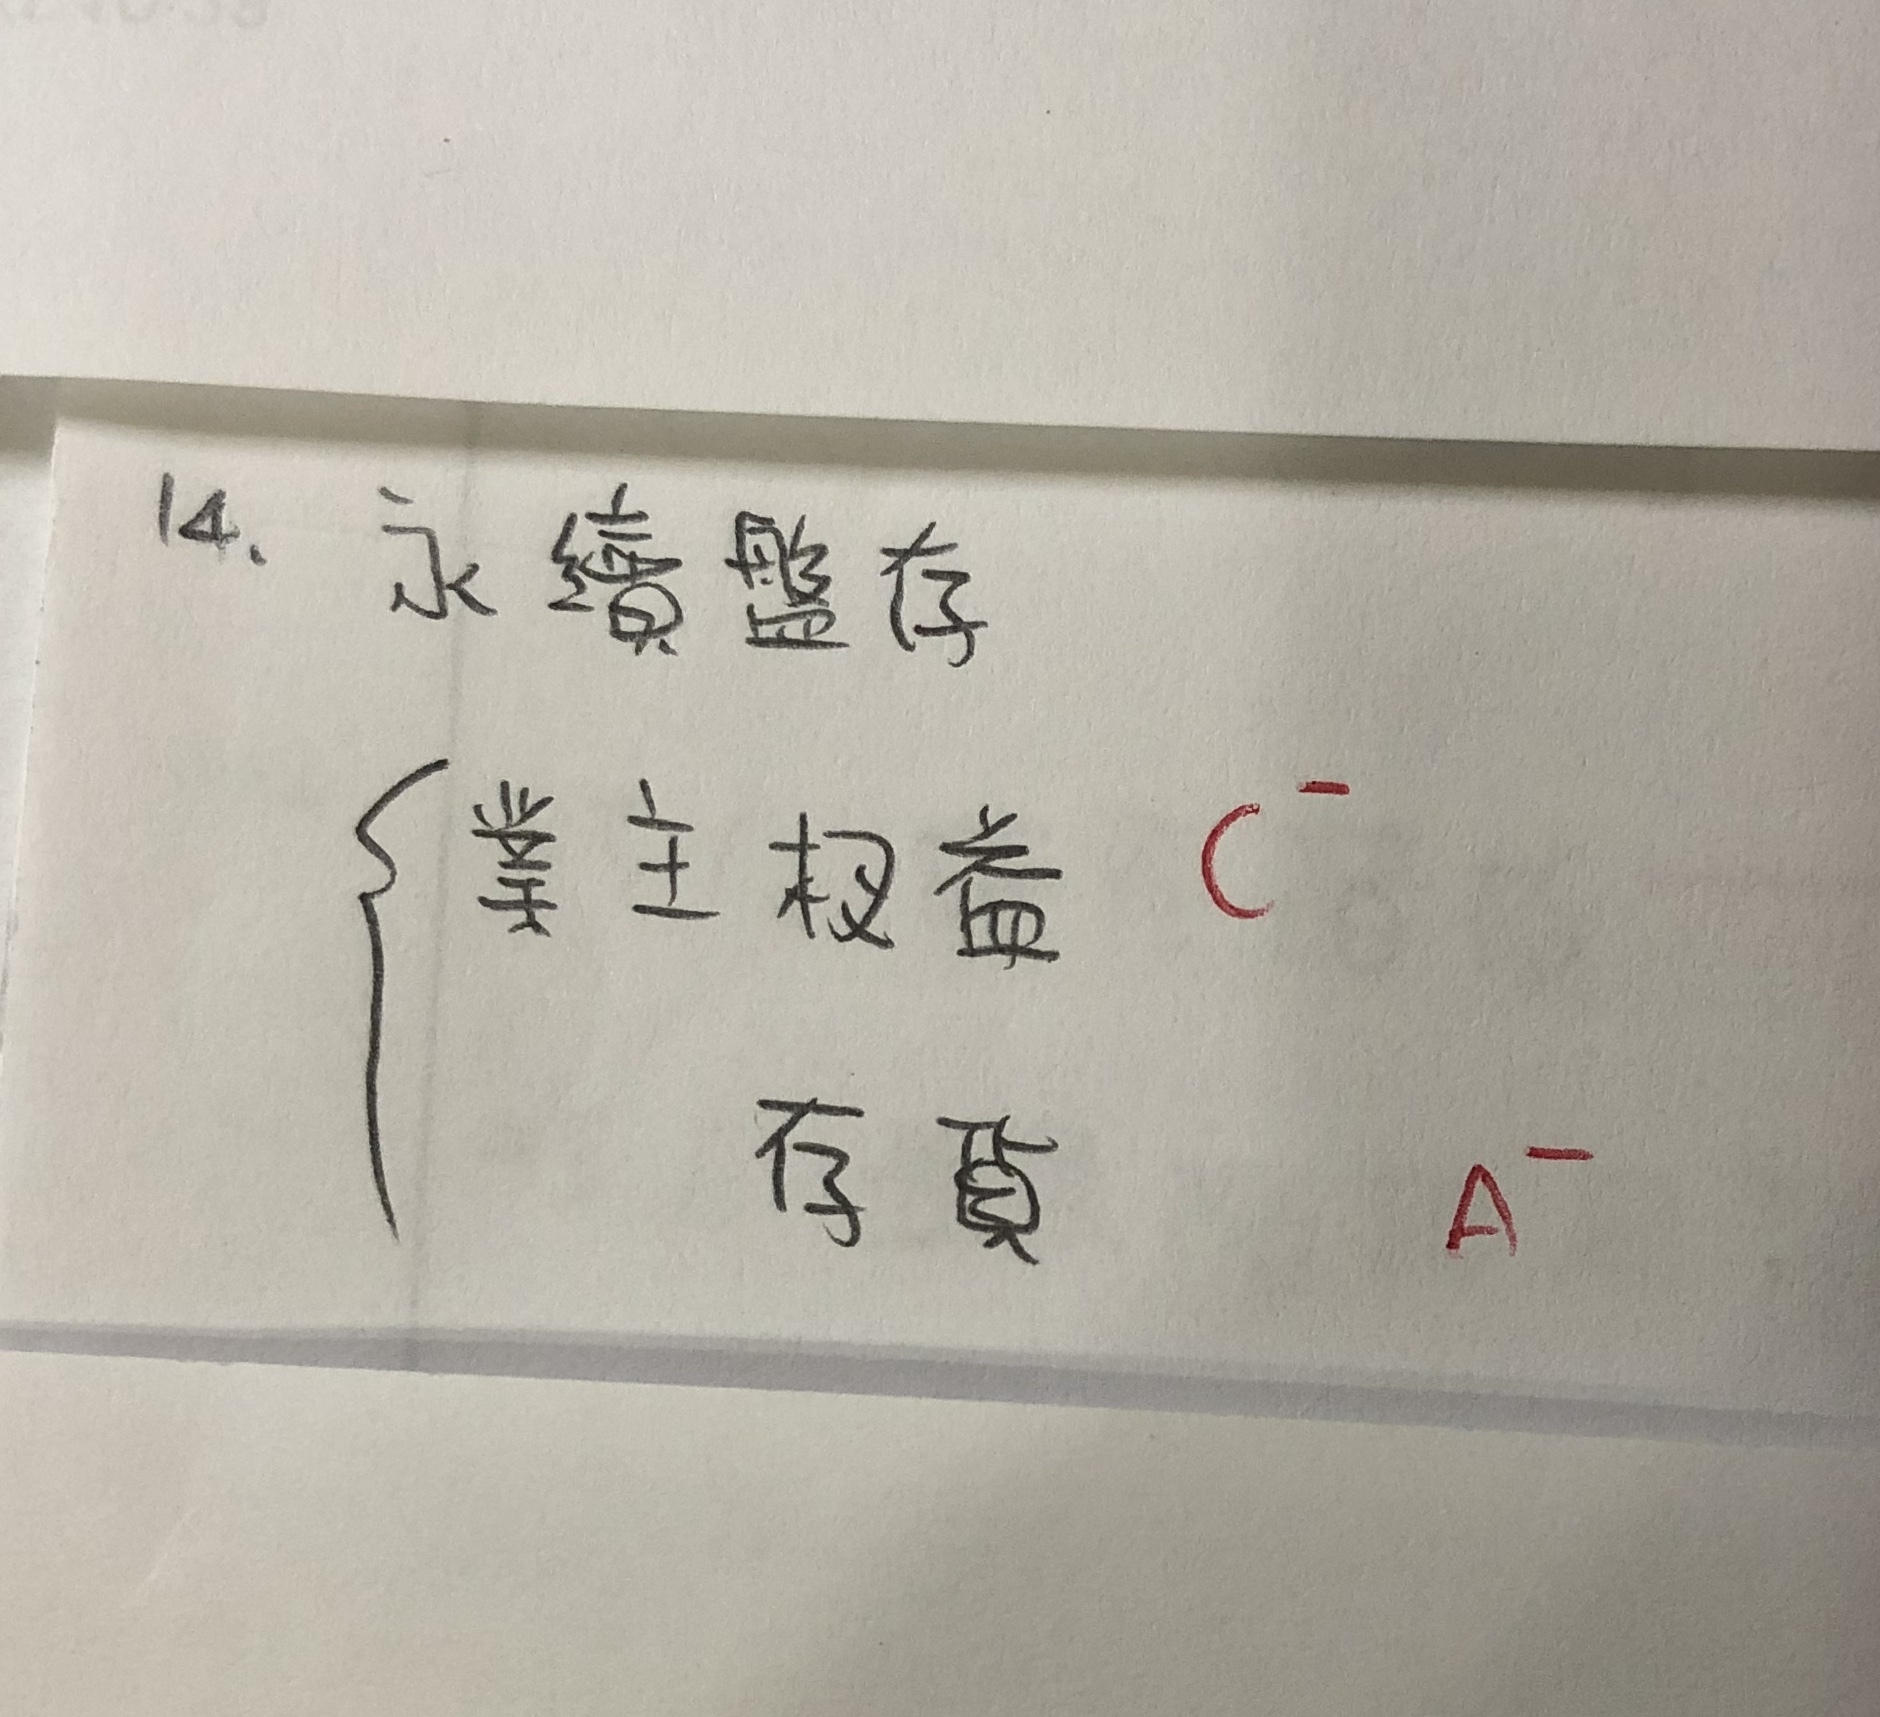 14. 永續盤存
業主权益 C⁻
存貨 A⁻